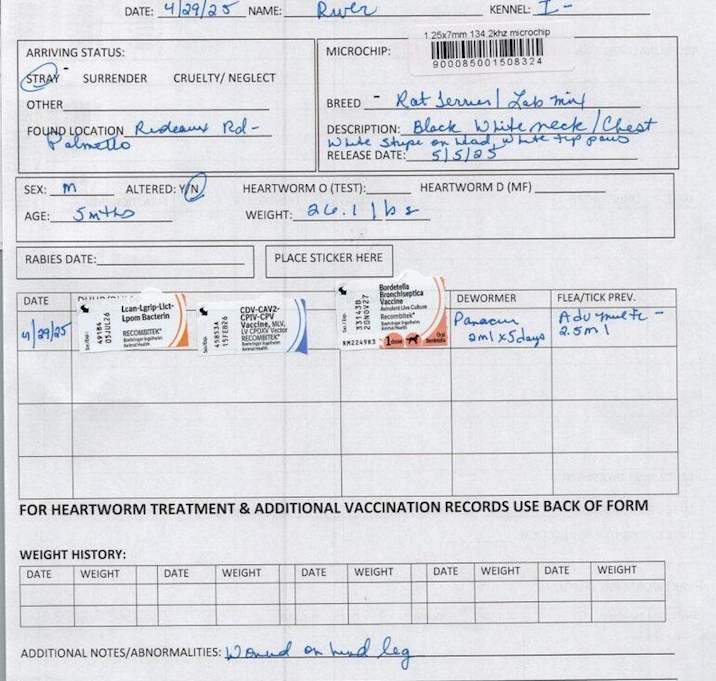 DATE: 4/29/25 NAME: River KENNEL: I-
1.25x7mm 134.2khz microchip
900085001508324
ARRIVING STATUS:
STRAY SURRENDER CRUELTY/ NEGLECT
OTHER
FOUND LOCATION Rideaux Rd -
Palmetto
MICROCHIP:
BREED - Rat Terrier/ Lab mix
DESCRIPTION: Black White neck/Chest
White Stripe on head, white tip paws
RELEASE DATE: 5/5/25
SEX: M ALTERED: Y/N HEARTWORM O (TEST): HEARTWORM D (MF)
AGE: 5mths WEIGHT: 26.1 lbs
RABIES DATE:
PLACE STICKER HERE
DATE DEWORMER FLEA/TICK PREV.
4/29/25
Lcan-Lgrip-Lict-
Lpom Bacterin
RECOMBITEK®
Boehringer Ingelheim
Animal Health
Ser./Exp.
49184
05JUL26
CDV-CAV2-
CPIV-CPV
Vaccine, MLV,
LV CPOXV Vector
RECOMBITEK®
Boehringer Ingelheim
Animal Health
Ser./Exp.
45853A
15FEB26
Bordetella
Bronchiseptica
Vaccine
Avirulent Live Culture
Recombitek®
Boehringer Ingelheim
Animal Health
Ser./Exp.
33143B
20NOV27
RM2249R3
1 dose
Oral
Bordetella
Panacur
2ml x 5days
Advmulti -
2.5ml
FOR HEARTWORM TREATMENT & ADDITIONAL VACCINATION RECORDS USE BACK OF FORM
WEIGHT HISTORY:
DATE WEIGHT DATE WEIGHT DATE WEIGHT DATE WEIGHT DATE WEIGHT
ADDITIONAL NOTES/ABNORMALITIES: Wound on hind leg